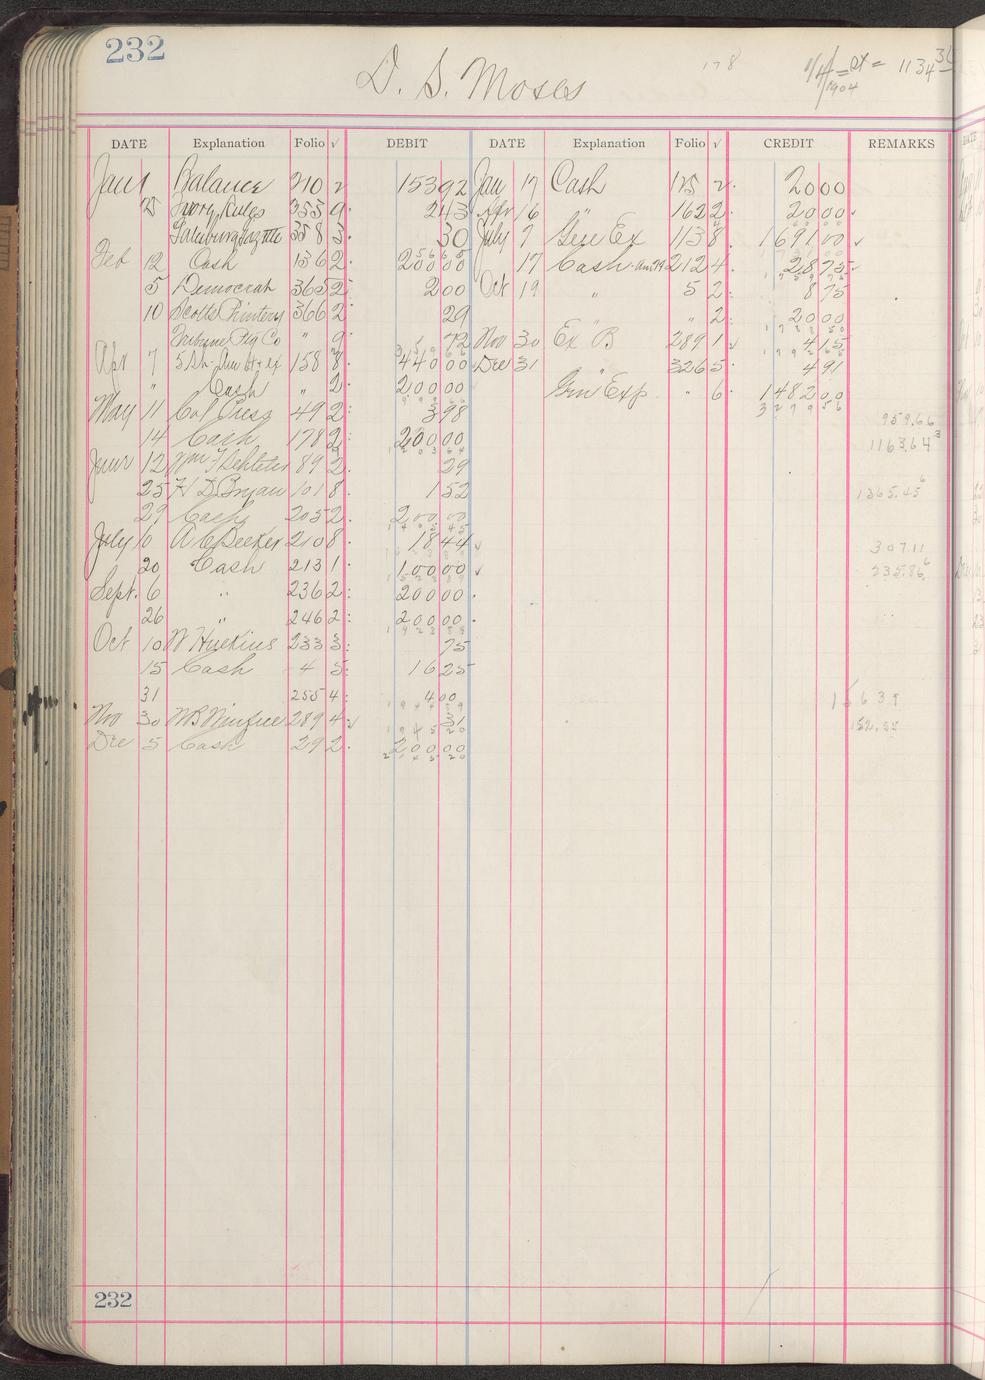 232
D. S. Moses
178
= 1134 36
1904
DATE Explanation Folio √ DEBIT DATE Explanation Folio √ CREDIT REMARKS
Jan 1 Balance 210 2 153 92 Jan 17 Cash 125 2 20 00
25 Ivory Rules 353 9 2 43 Apr 16 " 162 2 20 00
358 3 30 July 7 Gen Ex 113 8 1691 00
Feb 12 Cash 136 2 200 00 17 Cash 212 4 28 75
5 Democrat 365 2 2 00 Oct 19 " 5 2 8 75
10 Scotts Printery 366 2 29 " 2 20 00
Tribune Ptg Co " 9 72 Nov 30 Ex B 289 1 4 15
Apr 7 158 8 440 00 Dec 31 326 5 4 91
" Cash " 2 200 00 Gen Exp " 6 1482 00
May 11 49 2 3 98 959.66
14 Cash 178 2 200 00 1163.64
June 12 89 2 29
25 H D Bryan 101 8 1 52 1365.45
29 Cash 205 2 200 00
July 6 A C Becker 210 8 18 44 307.11
20 Cash 213 1 100 00 235.86
Sept. 6 " 236 2 200 00
26 " 246 2 200 00
Oct 10 W Huskins 233 3 75
15 Cash 4 5 16 25
31 255 4 4 00
Nov 30 289 4 31
Dec 5 Cash 29 2 200 00
232